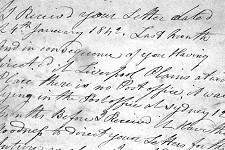 I Received your Letter dated
4th January 1842. Last Month
And in consequence of you Having
Direct'd it Liverpool Plains at which
Place there is no Post office it was
Lying in the Post office at Sydney 12
Months Before I Received it. Have the
Goodness to direct your Letters for the